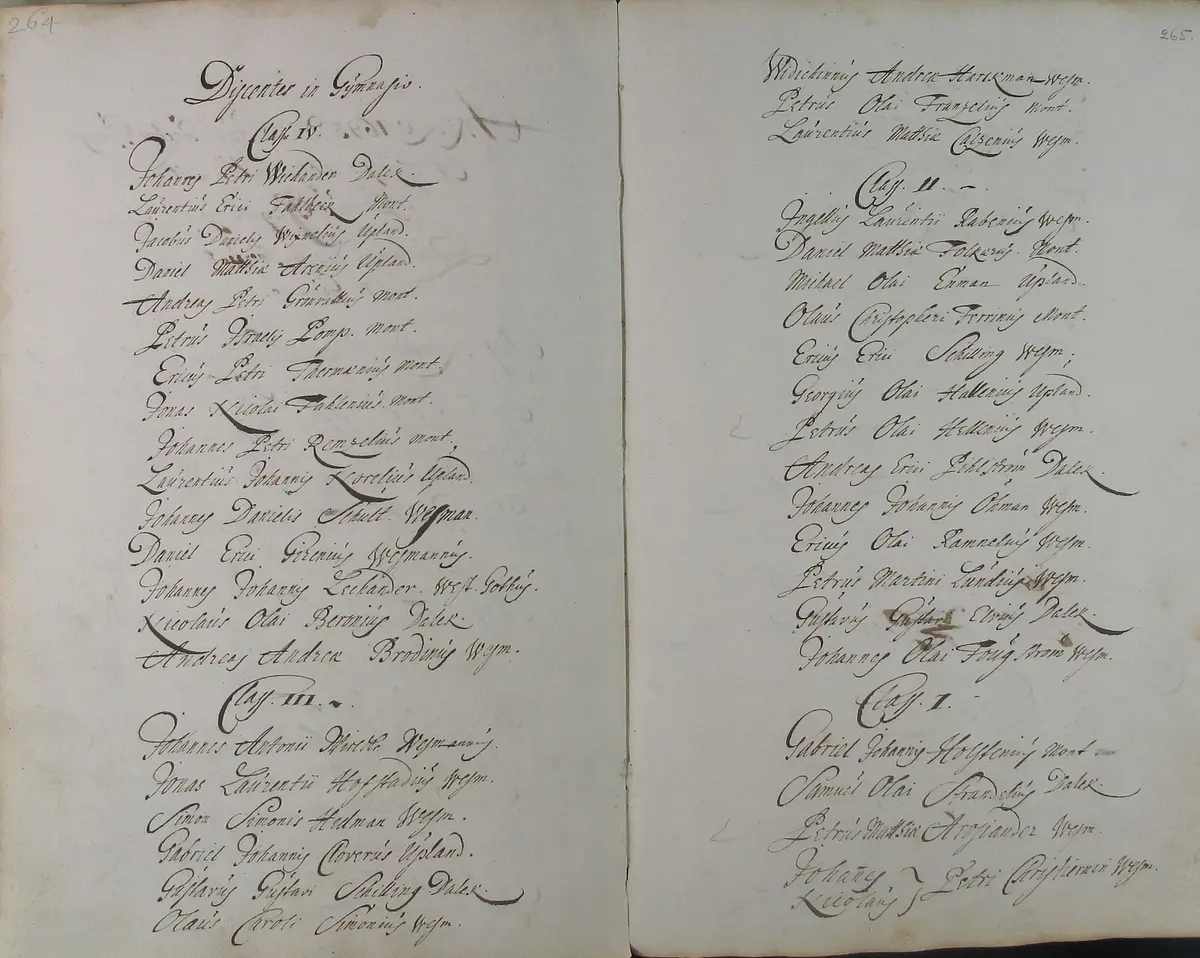 264
Discentes in Gÿmnasio.
Class. IV.
Johannes Petri Wichander Dalek.
Laurentius Erici Fahlbeck Mont.
Jacobus Danielis Upland.
Daniel Matthiæ Arenius Upland.
Andreas Petri Grönvallius mont.
Petrus Israelis Pomp. mont.
Ericus Petri Thermænius mont.
Jonas Nicolai Fahlenius mont.
Johannes Petri Remzelius mont.
Laurentius Johannis Norelius Upland.
Johannes Danielis Schult. Wesman.
Daniel Erici Girenius Wesmannus.
Johannes Johannis Lechander. West. Gothus.
Nicolaus Olai Beronius Dalek.
Andreas Andreæ Brodinus Wesm.
Class. III.
Johannes Antonii Wesmannus.
Jonas Laurentii Hofstadius Wesm.
Simon Simonis Hedman Wesm.
Gabriel Johannis Cloverus Upland.
Gustavus Gustavi Schilling Dalek.
Olaus Caroli Simonius Wesm.
265.
Widichinnus Andreæ Harckman Wesm.
Petrus Olai Franzelius mont.
Laurentius Matthiæ Calzenius Wesm.
Class. II.
Ingellus Laurentii Rabenius Wesm.
Daniel Matthiæ Folkarus Mont.
Michael Olai Enman Upland.
Olaus Christopheri Ferrinus Mont.
Ericus Erici Schilling Wesm;
Georgius Olai Hallenius Upland.
Petrus Olai Hellenius Wesm.
Andreas Erici Pihlström Dalek.
Johannes Johannis Öhman Wesm.
Ericus Olai Ramnelius Wesm.
Petrus Martini Lundius Wesm.
Gustavus Gustavi Elvius Dalek.
Johannes Olai Fougström Wesm.
Class. I.
Gabriel Johannis Holstenius Mont
Samuel Olai Strandelius Dalek.
Petrus Matthiæ Arosiander Wesm.
Johannes } Petri Chrysherneri Wesm.
Nicolaus }